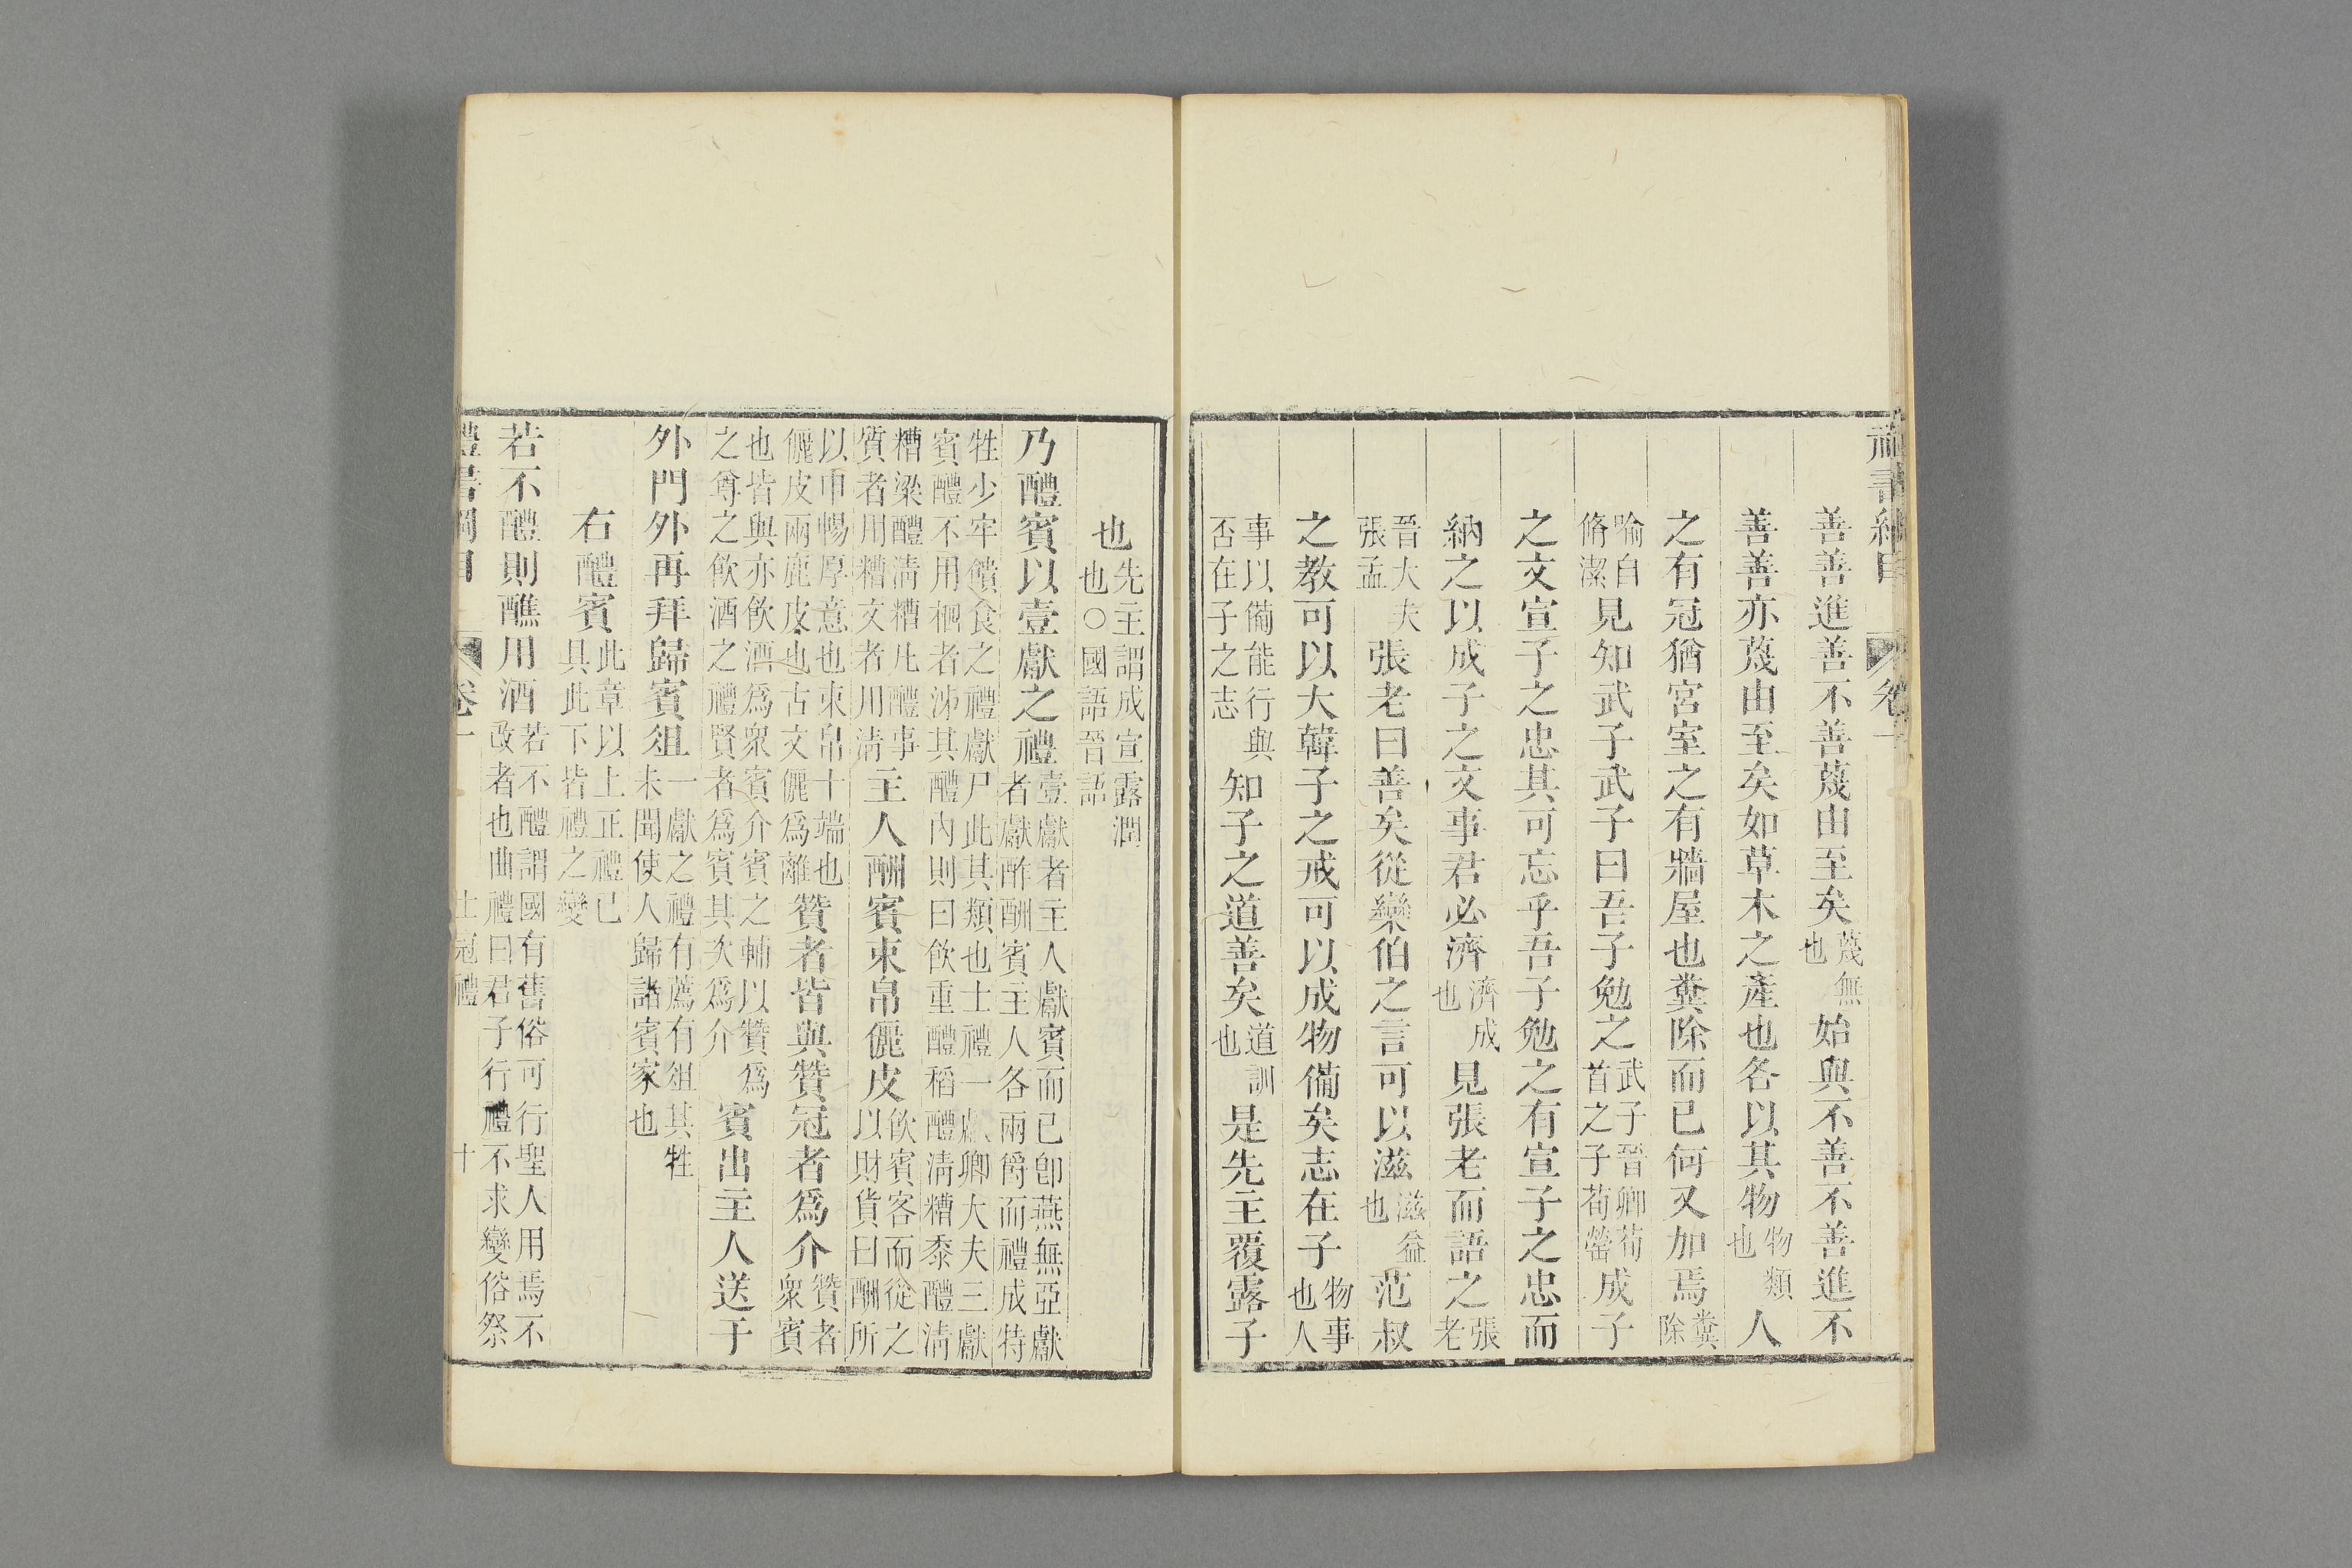 善善進善不善蔑由至矣蔑無也始與不善不善進不
善善亦蔑由至矣如草木之產也各以其物物類也人
之有冠猶宮室之有牆屋也糞除而已何又加焉糞除
喻自脩潔見知武子武子曰吾子勉之武子晉卿荀首之子荀罃成子
之文宣子之忠其可忘乎吾子勉之有宣子之忠而
納之以成子之文事君必濟濟成也見張老而語之張老
晉大夫張孟張老曰善矣從欒伯之言可以滋滋益也范叔
之教可以大韓子之戒可以成物備矣志在子物事也人
事以備能行與否在子之志知子之道善矣道訓也是先主覆露子
也先主謂成宣露潤也○國語晉語
乃醴賓以壹獻之禮壹獻者主人獻賓而已卽燕無亞獻者獻酢酬賓主人各兩爵而禮成特
牲少牢饋食之禮獻尸此其類也士禮一獻卿大夫三獻賓醴不用柶者泲其醴內則曰飲重醴稻醴淸糟黍醴淸
糟粱醴淸糟凡醴事質者用糟文者用淸主人酬賓束帛儷皮飲賓客而從之以財貨曰酬所
以申暢厚意也束帛十端也儷皮兩鹿皮也古文儷爲離贊者皆與贊冠者爲介贊者衆賓
也皆與亦飲酒爲衆賓介賓之輔以贊爲之尊之飲酒之禮賢者爲賓其次爲介賓出主人送于
外門外再拜歸賓俎一獻之禮有薦有俎其牲未聞使人歸諸賓家也
右醴賓此章以上正禮已具此下皆禮之變
若不醴則醮用酒若不醴謂國有舊俗可行聖人用焉不改者也曲禮曰君子行禮不求變俗祭
禮書綱目 卷一 士冠禮 十